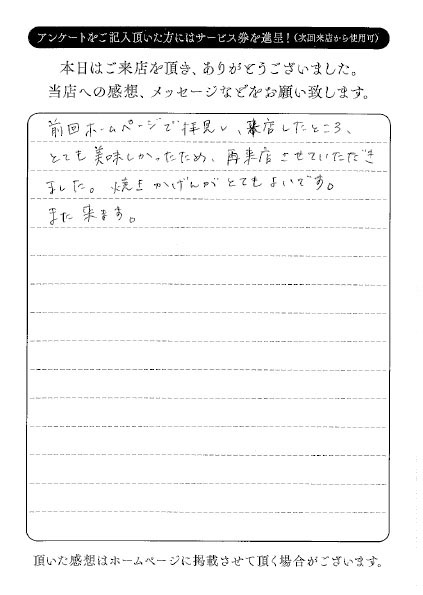 アンケートをご記入頂いた方にはサービス券を進呈！(次回来店から使用可)
本日はご来店を頂き、ありがとうございました。
当店への感想、メッセージなどをお願い致します。
前回ホームページで拝見し、来店したところ、
とても美味しかったため、再来店させていただき
ました。焼きかげんがとてもよいです。
また来ます。
頂いた感想はホームページに掲載させて頂く場合がございます。